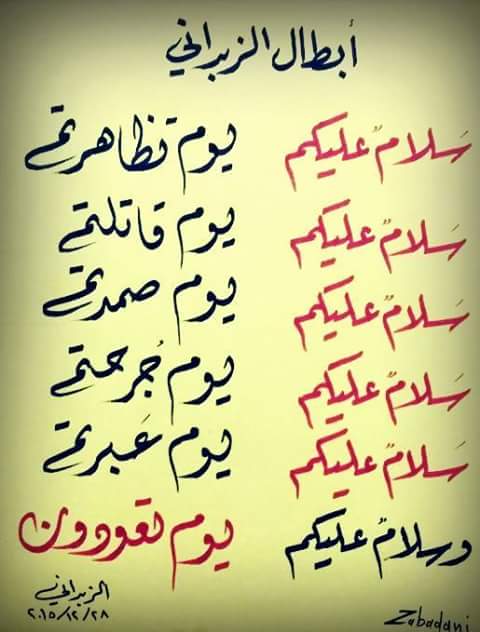 أبطال الزبداني
سَلامٌ عليكم يوم تظاهرتم
سَلامٌ عليكم يوم قاتلتم
سَلامٌ عليكم يوم صمدتم
سَلامٌ عليكم يوم جُرحتم
سَلامٌ عليكم يوم عَبرتم
وسلامٌ عليكم يوم تعودون
الزبداني
٢٠١٥/١٢/٢٨
Zabadani